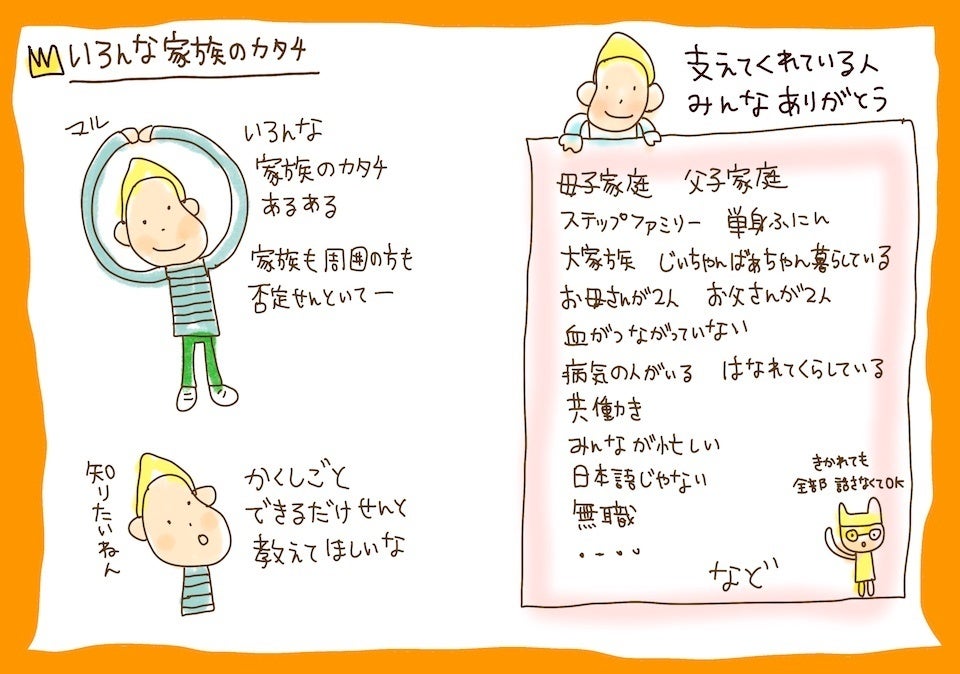 いろんな家族のカタチ
マル
いろんな
家族のカタチ
あるある
家族も周囲の方も
否定せんといてー
知りたいねん
かくしごと
できるだけせんと
教えてほしいな
支えてくれている人
みんなありがとう
母子家庭 父子家庭
ステップファミリー 単身ふにん
大家族 じいちゃんばあちゃん暮らしている
お母さんが2人 お父さんが2人
血がつながっていない
病気の人がいる はなれてくらしている
共働き
みんなが忙しい
日本語じゃない
無職
・・・・・
など
きかれても
全部話さなくてOK